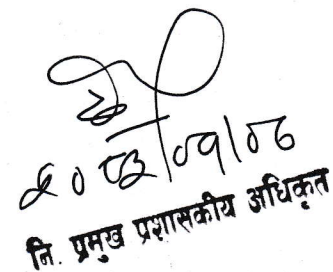 २०८३/०१/०८
नि. प्रमुख प्रशासकीय अधिकृत